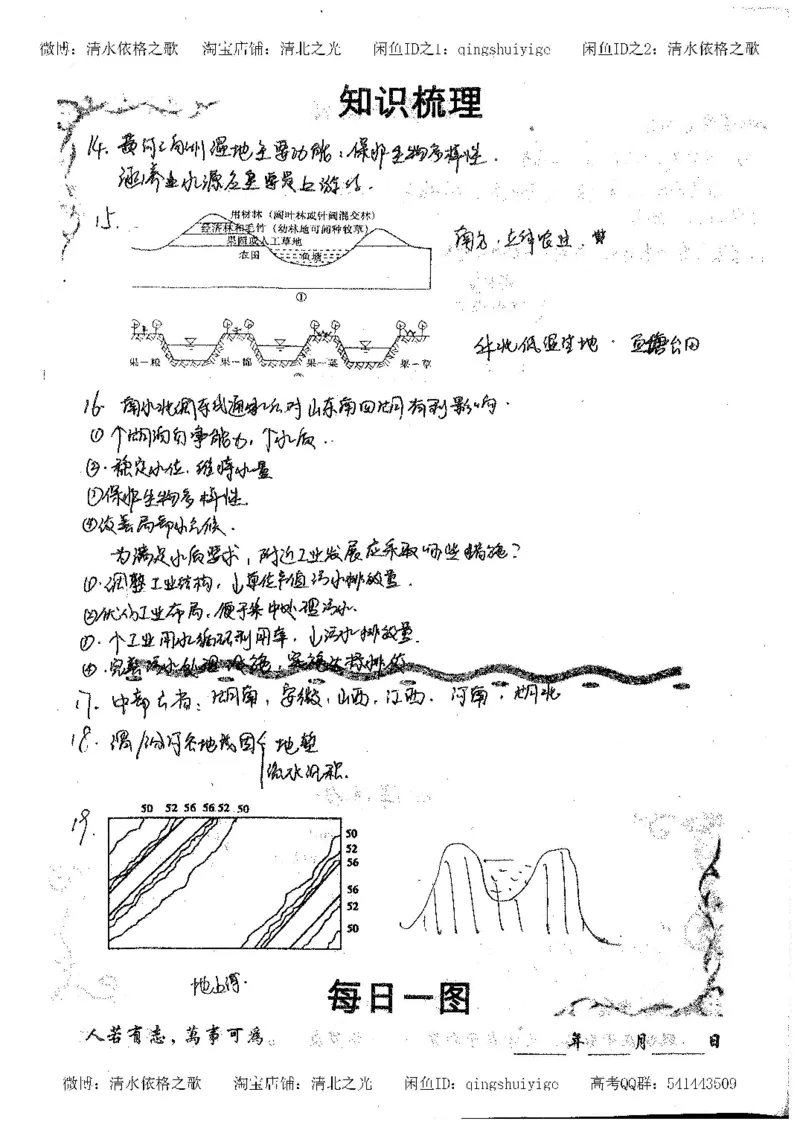 微博：清水依格之歌 淘宝店铺：清北之光 闲鱼ID之1：qingshuiyige 闲鱼ID之2：清水依格之歌
知识梳理
14. 黄河三角洲湿地主要功能：保护生物多样性.
涵养水源
15.
用材林（阔叶林或针阔混交林）
经济林和毛竹（幼林地可间种牧草）
果园或人工草地
农田 鱼塘
①
南方·立体农业.
果—粮 果—棉 果—菜 果—草
华北低湿洼地·鱼塘台田
16. 南水北调东线通水后对山东南四湖有利影响.
①个湖泊自净能力，个水质..
②.稳定水位.维持水量
①保护生物多样性.
④改善局部小气候.
为满足水质要求，附近工业发展应采取哪些措施？
①.调整工业结构，↓单位产值污水排放量.
②优化工业布局，便于集中处理污水.
①.个工业用水循环利用率，↓污水排放量.
④.完善污水处理设施，实现达标排放
17. 中部六省：湖南，安徽，山西，江西. 河南，湖北
18. 渭/汾河谷地成因{地堑
流水沉积.
19.
50 52 56 56 52 50
50
52
56
56
52
50
地上河.
每日一图
人若有志，萬事可為。
年 月 日
微博：清水依格之歌 淘宝店铺：清北之光 闲鱼ID：qingshuiyige 高考QQ群：541443509